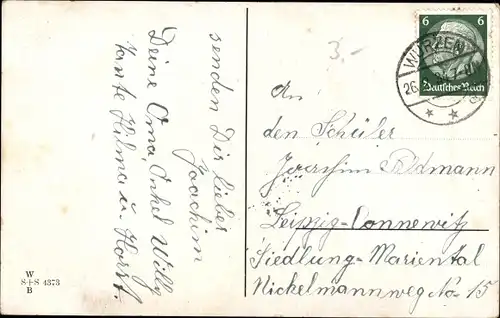 senden Dir lieber
Joachim
Deine Oma, Onkel Willy
tante Hilma u. Horst.
W
S+S 4373
B
3,-
6 6
Deutsches Reich
WURZEN
26.
An
den Schüler
Joachim Feldmann
Leipzig-Connewitz
Siedlung-Mariental
Nickelmannweg No 15